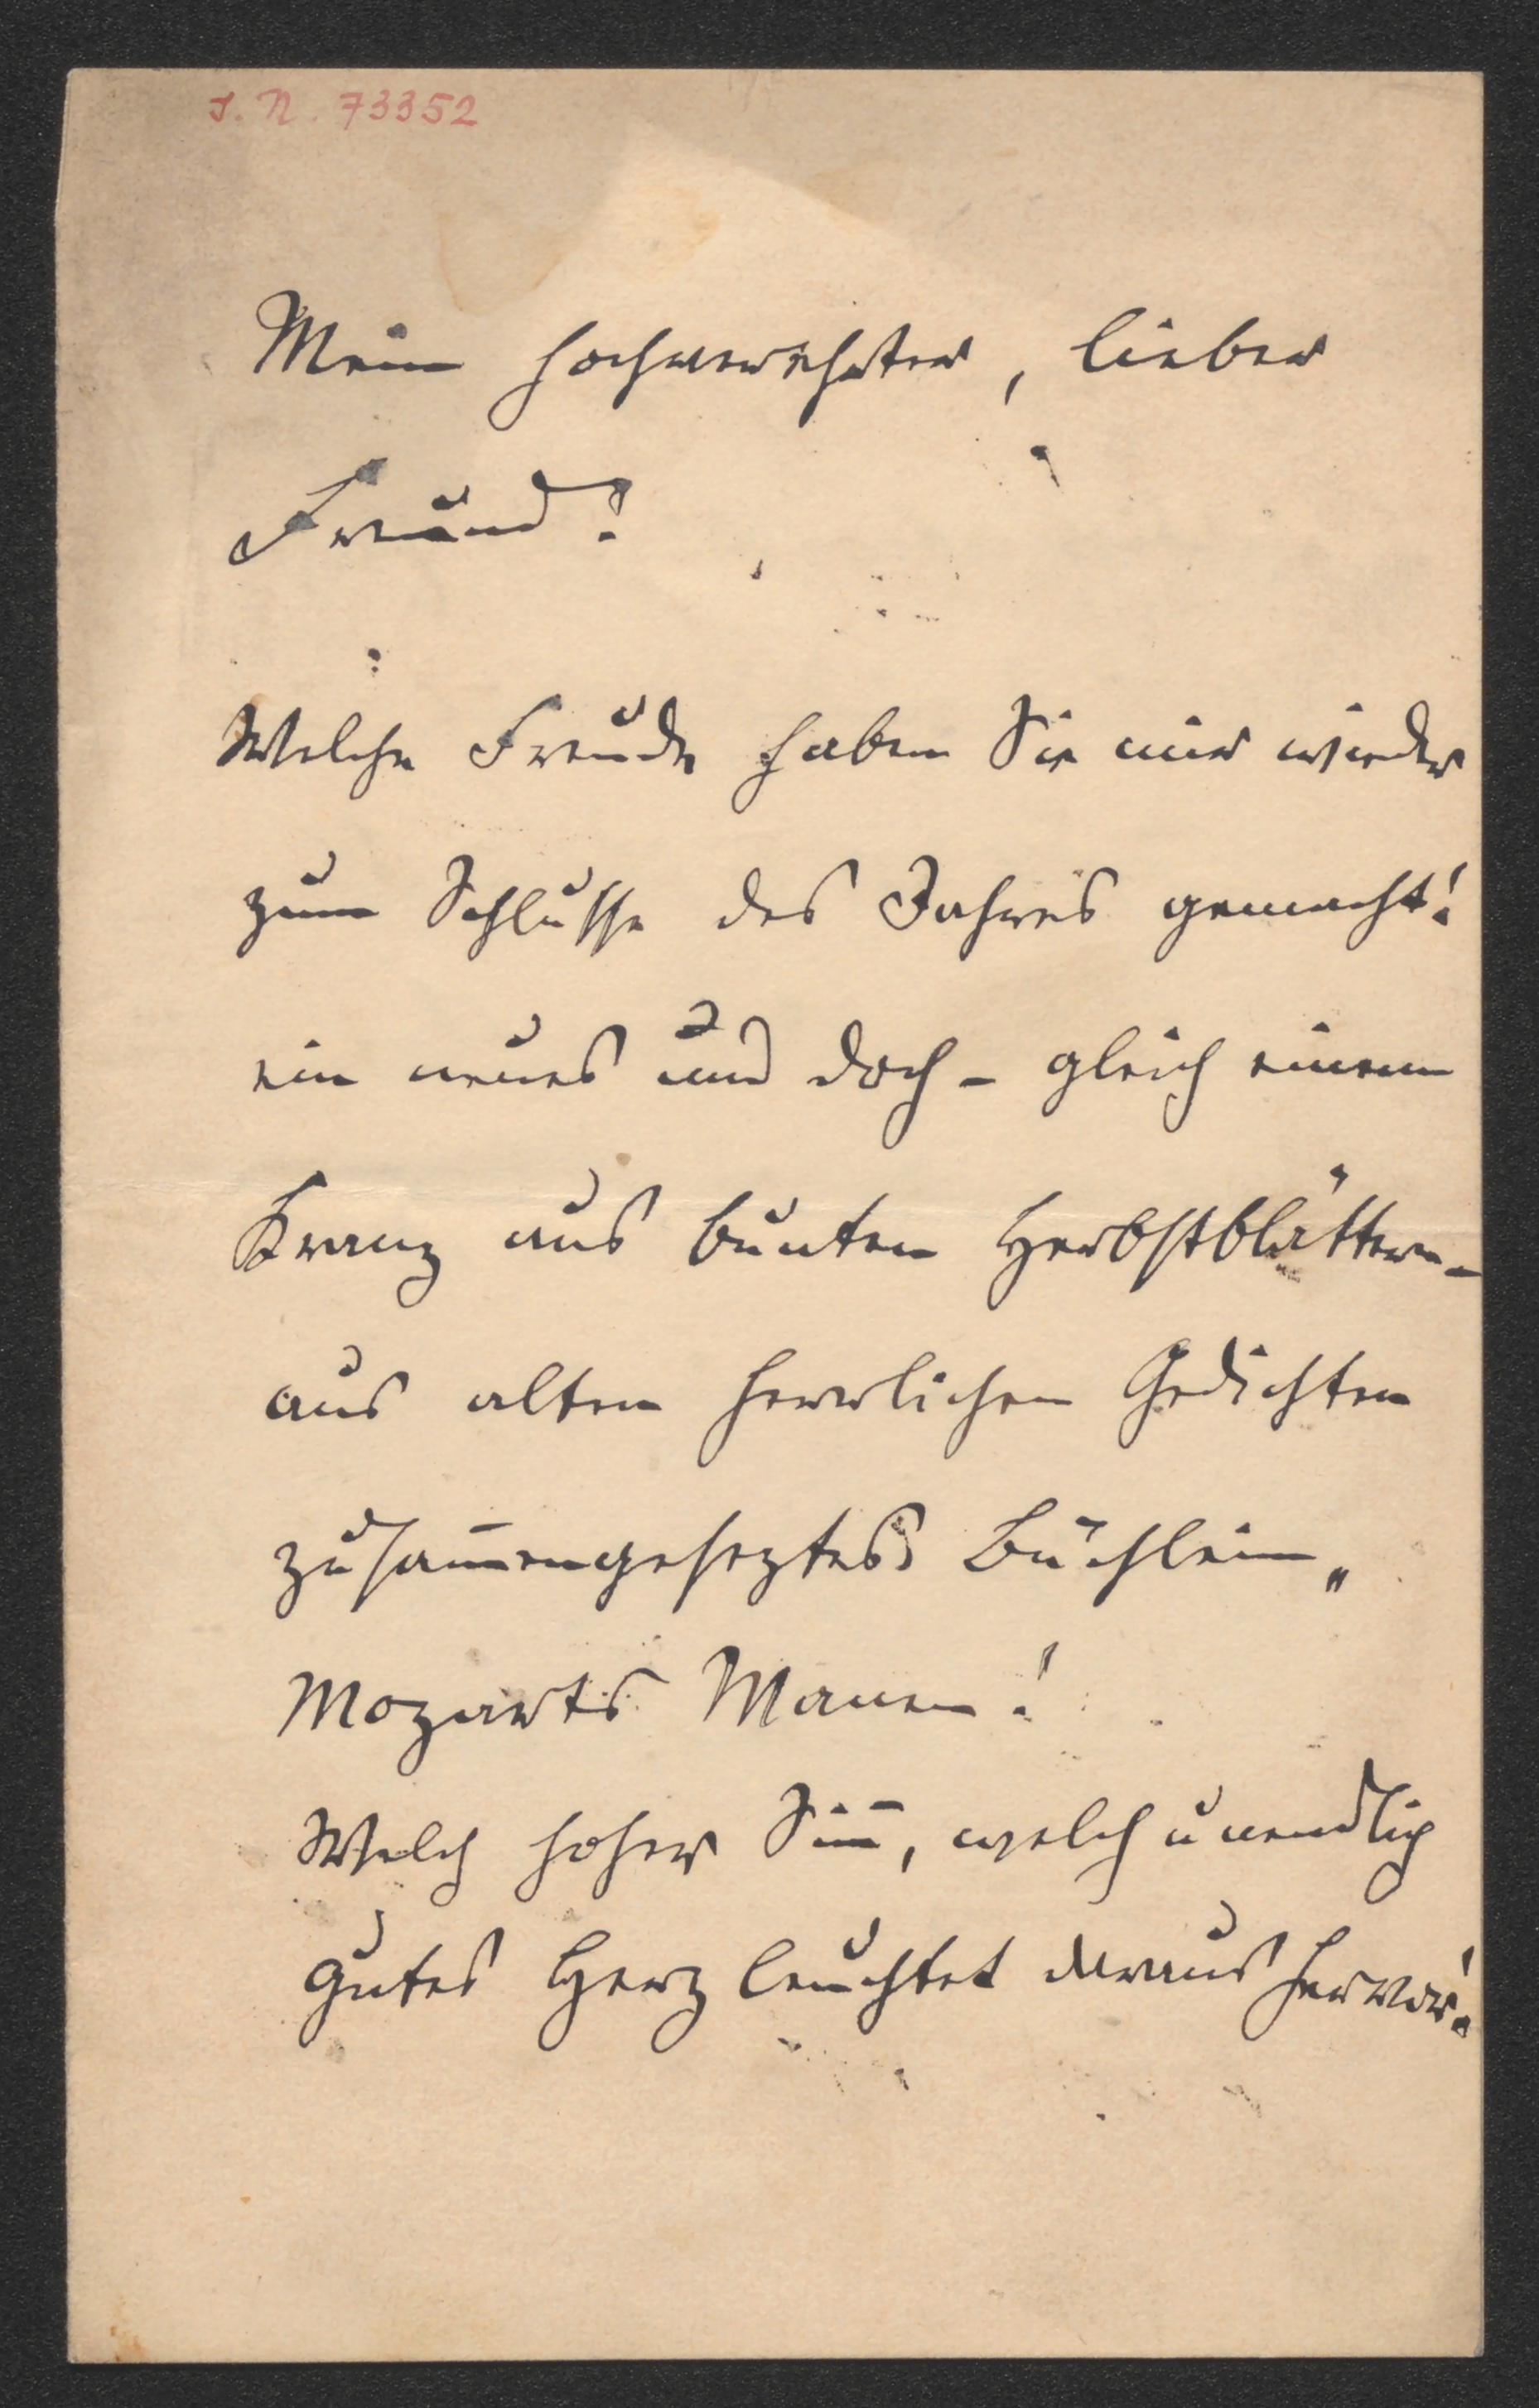 I. N. 73352
Mein hochverehrter, lieber
Freund!
Welche Freude haben Sie mir wieder
zum Schlusse des Jahres gemacht!
ein neues und doch - gleich einem
Kranz aus bunten Herbstblättern -
aus alten herrlichen Gedichten
zusam̅engeseztes Büchlein „
Mozarts Manen!
Welch hoher Sin̅, welch unendlich
gutes Herz leuchtet daraus hervor!